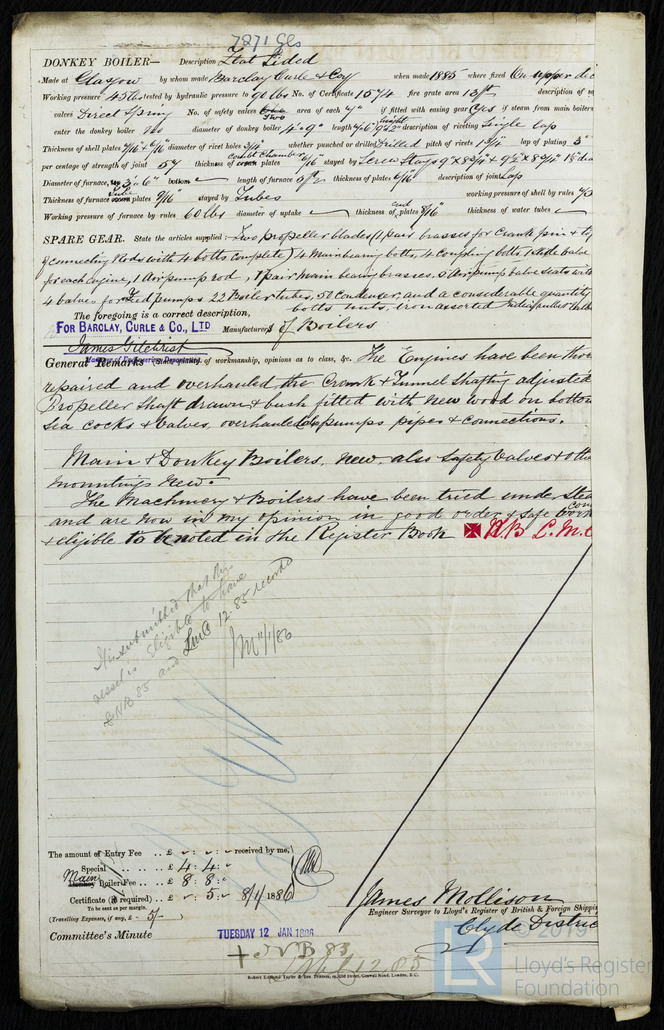 7271 Gls
DONKEY BOILER— Description Flat Sided
Made at Glasgow by whom made Barclay Curle & Coy when made 1885 where fixed On upper dec
Working pressure 45 lbs tested by hydraulic pressure to 90 lbs No. of Certificate 1574 fire grate area 13 ft description of sa
valves Direct Spring No. of safety valves Two area of each 7" if fitted with easing gear Yes if steam from main boilers
enter the donkey boiler No diameter of donkey boiler 4'-9" length description of riveting Single lap
Thickness of shell plates 7/16" diameter of rivet holes 3/4" whether punched or drilled Drilled pitch of rivets 1 3/4" lap of plating 3"
per centage of strength of joint 57 thickness of combt chamber plates 7/16 stayed by Screw Stays 9" x 8 3/4" & 9 1/2" x 8 3/4"
Diameter of furnace, 3' 6" bottom length of furnace thickness of plates description of joint Lap
Thickness of furnace tube plates 9/16" stayed by Tubes working pressure of shell by rules
Working pressure of furnace by rules 60 lbs diameter of uptake thickness of end plates thickness of water tubes
SPARE GEAR. State the articles supplied:— Two propeller blades (1 pair brasses for Crank pin & t
& connecting Rods with 4 botts complete) 4 Main bearing botts, 4 coupling botts 1 slide valve
for each engine, 1 Air pump rod, 1 pair Main bearing brasses. Air pump valve seats with
4 valves for Feed pumps 22 Boiler tubes, 50 Condenser, and a considerable quantity
botts nuts, iron assorted India rubber
The foregoing is a correct description,
FOR BARCLAY, CURLE & CO., LTD Manufacturers of Boilers
James Gilchrist
Manager of Engineering Department.
General Remarks (State quality of workmanship, opinions as to class, &c. The Engines have been thor
repaired and overhauled the Crank & Tunnel Shafting adjusted
Propeller Shaft drawn & bush fitted with new wood on bottom
Sea cocks & Valves, overhauled pumps pipes & connections.
Main & Donkey Boilers, new, also Safety Valves & othe
mountings New.
The Machinery & Boilers have been tried under Stea
and are now in my opinion in good order & safe work
con
& eligible to be noted in the Register Book N.B L.M.C
It is submitted that this
vessel is eligible to have
& NB 85 and LMC 12.85 records
JM 11/1/86
The amount of Entry Fee .. £ - : - : - received by me,
Special .. .. £ 4 : 4 : -
Main Donkey Boiler Fee .. £ 8 : 8 : -
Certificate (if required) .. £ - : 5 : - 8/1/1886
To be sent as per margin.
(Travelling Expenses, if any, £ - 5/-)
James Mollison
Engineer Surveyor to Lloyd's Register of British & Foreign Shippin
Clyde Distric
Committee's Minute TUESDAY 12 JAN 1886
+ NB 85
12 85
Robert Edmund Taylor & Son, Printers, Goswell Road, London, E.C.
© 2019
LR
Lloyd's Register
Foundation